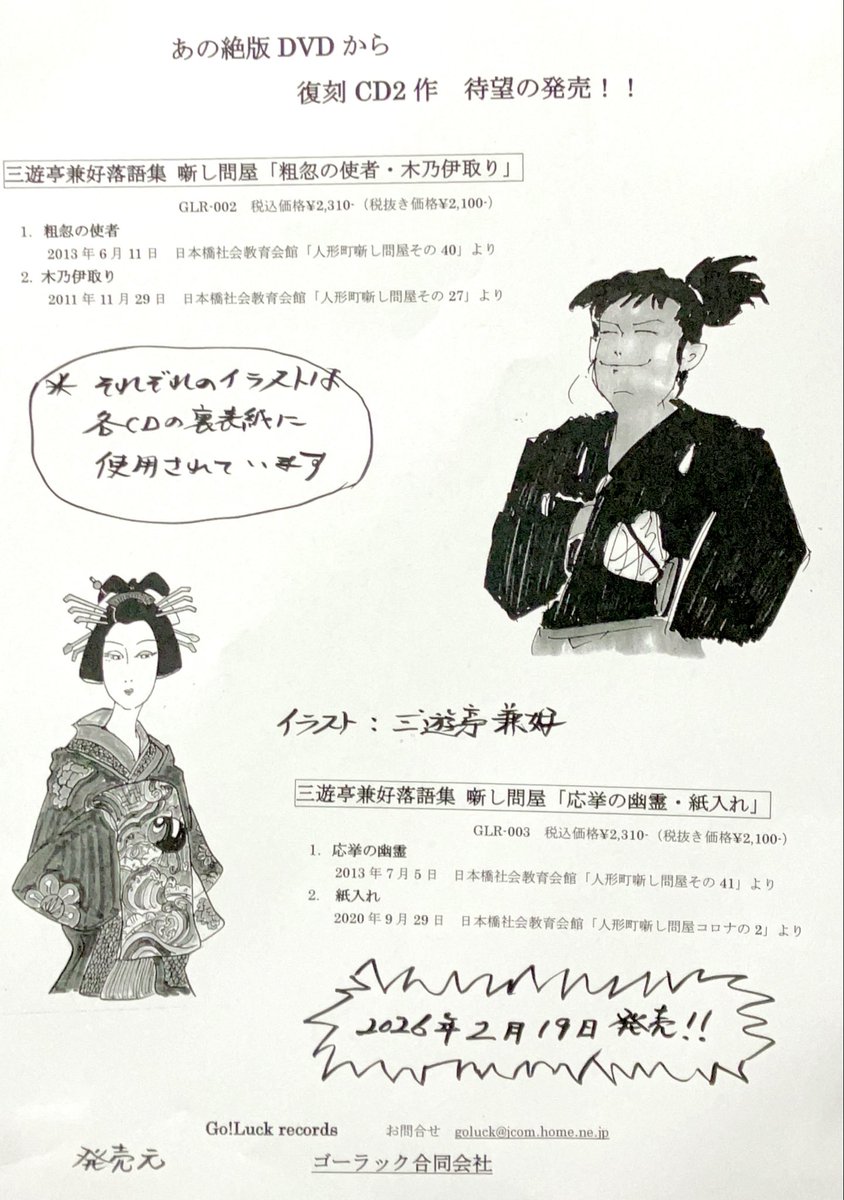 あの絶版 DVD から
復刻 CD2 作　待望の発売！！
三遊亭兼好落語集 噺し問屋「粗忽の使者・木乃伊取り」
GLR-002　税込価格¥2,310-（税抜き価格¥2,100-）
1. 粗忽の使者
2013 年 6 月 11 日　日本橋社会教育会館「人形町噺し問屋その 40」より
2. 木乃伊取り
2011 年 11 月 29 日　日本橋社会教育会館「人形町噺し問屋その 27」より
＊ それぞれのイラストは
各CDの裏表紙に
使用されています
イラスト：三遊亭兼好
三遊亭兼好落語集 噺し問屋「応挙の幽霊・紙入れ」
GLR-003　税込価格¥2,310-（税抜き価格¥2,100-）
1. 応挙の幽霊
2013 年 7 月 5 日　日本橋社会教育会館「人形町噺し問屋その 41」より
2. 紙入れ
2020 年 9 月 29 日　日本橋社会教育会館「人形町噺し問屋コロナの 2」より
2026年2月19日 発売!!
Go!Luck records　お問合せ　goluck@jcom.home.ne.jp
発売元　ゴーラック合同会社